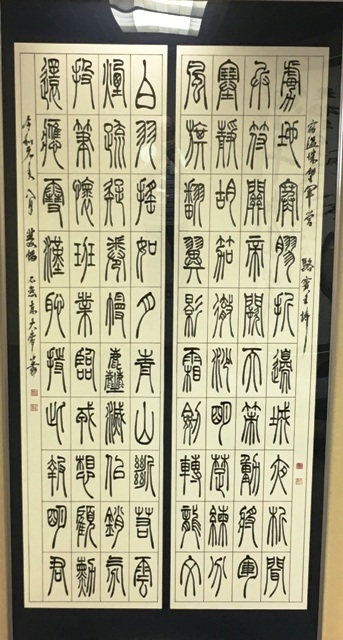 宿溫城望軍營 駱賓王詩
虜地寒膠折邊城夜柝聞
兵符關帝闕天策動將軍
塞靜胡笳徹沙明楚練分
風旗翻翼影霜劍轉龍文
白羽搖如月青山斷若雲
煙疏疑卷幔塵滅似銷氛
投筆懷班業臨戎想顧勳
還應雪漢恥持此報明君
令和元年八月